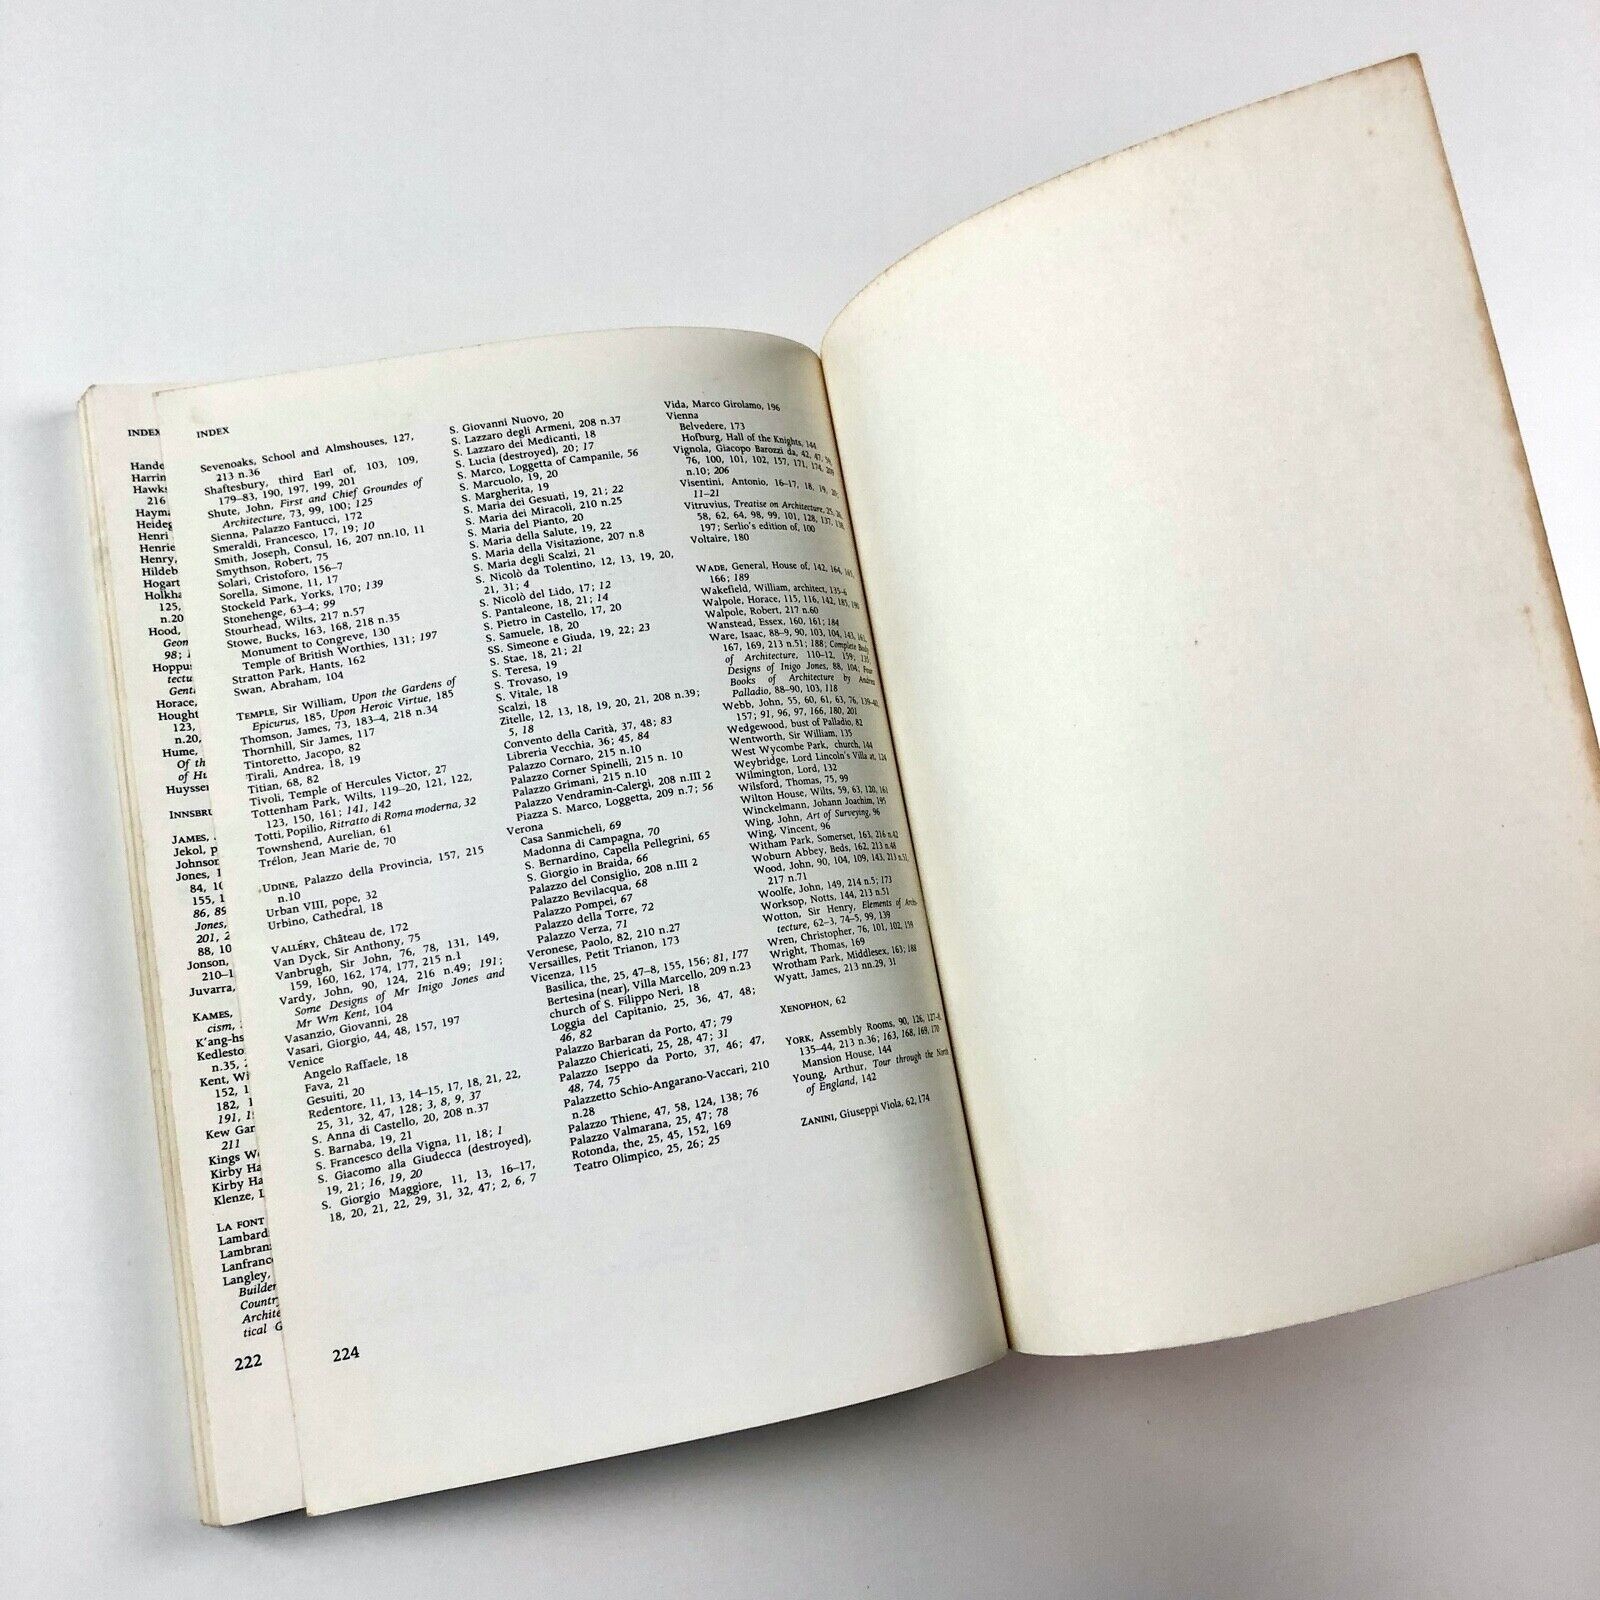 INDEX
Hande
Harrin
Hawks
216
Haym
Heideg
Henri
Henrie
Henry,
Hildeb
Hogart
Holkha
125,
n.20
Hood,
Geon
98; 1
Hoppus
tectu
Genti
Horace,
Hought
123,
n.20,
Hume,
Of th
of Hu
Huysser
INNSBRU
JAMES,
Jekol, p
Johnson
Jones, 1
84, 10
155, 1
86, 89
Jones,
201, 2
88, 10
Jonson,
210–1
Juvarra,
KAMES,
cism,
K'ang-hs
Kedlesto
n.35, 2
Kent, Wi
152, 1
182, 1
191, 1
Kew Gar
211
Kings We
Kirby Ha
Kirby Ha
Klenze, L
LA FONT
Lambard
Lambran
Lanfranc
Langley,
Builder
Country
Archite
tical G
222
INDEX
Sevenoaks, School and Almshouses, 127,
213 n.36
Shaftesbury, third Earl of, 103, 109,
179–83, 190, 197, 199, 201
Shute, John, First and Chief Groundes of
Architecture, 73, 99, 100; 125
Sienna, Palazzo Fantucci, 172
Smeraldi, Francesco, 17, 19; 10
Smith, Joseph, Consul, 16, 207 nn.10, 11
Smythson, Robert, 75
Solari, Cristoforo, 156–7
Sorella, Simone, 11, 17
Stockeld Park, Yorks, 170; 139
Stonehenge, 63–4; 99
Stourhead, Wilts, 217 n.57
Stowe, Bucks, 163, 168, 218 n.35
Monument to Congreve, 130
Temple of British Worthies, 131; 197
Stratton Park, Hants, 162
Swan, Abraham, 104
TEMPLE, Sir William, Upon the Gardens of
Epicurus, 185, Upon Heroic Virtue, 185
Thomson, James, 73, 183–4, 218 n.34
Thornhill, Sir James, 117
Tintoretto, Jacopo, 82
Tirali, Andrea, 18, 19
Titian, 68, 82
Tivoli, Temple of Hercules Victor, 27
Tottenham Park, Wilts, 119–20, 121, 122,
123, 150, 161; 141, 142
Totti, Popilio, Ritratto di Roma moderna, 32
Townshend, Aurelian, 61
Trélon, Jean Marie de, 70
UDINE, Palazzo della Provincia, 157, 215
n.10
Urban VIII, pope, 32
Urbino, Cathedral, 18
VALLÉRY, Château de, 172
Van Dyck, Sir Anthony, 75
Vanbrugh, Sir John, 76, 78, 131, 149,
159, 160, 162, 174, 177, 215 n.1
Vardy, John, 90, 124, 216 n.49; 191;
Some Designs of Mr Inigo Jones and
Mr Wm Kent, 104
Vasanzio, Giovanni, 28
Vasari, Giorgio, 44, 48, 157, 197
Venice
Angelo Raffaele, 18
Fava, 21
Gesuiti, 20
Redentore, 11, 13, 14–15, 17, 18, 21, 22,
25, 31, 32, 47, 128; 3, 8, 9, 37
S. Anna di Castello, 20, 208 n.37
S. Barnaba, 19, 21
S. Francesco della Vigna, 11, 18; 1
S. Giacomo alla Giudecca (destroyed),
19, 21; 16, 19, 20
S. Giorgio Maggiore, 11, 13, 16–17,
18, 20, 21, 22, 29, 31, 32, 47; 2, 6, 7
S. Giovanni Nuovo, 20
S. Lazzaro degli Armeni, 208 n.37
S. Lazzaro dei Medicanti, 18
S. Lucia (destroyed), 20; 17
S. Marco, Loggetta of Campanile, 56
S. Marcuolo, 19, 20
S. Margherita, 19
S. Maria dei Gesuati, 19, 21; 22
S. Maria dei Miracoli, 210 n.25
S. Maria del Pianto, 20
S. Maria della Salute, 19, 22
S. Maria della Visitazione, 207 n.8
S. Maria degli Scalzi, 21
S. Nicolò da Tolentino, 12, 13, 19, 20,
21, 31; 4
S. Nicolò del Lido, 17; 12
S. Pantaleone, 18, 21; 14
S. Pietro in Castello, 17, 20
S. Samuele, 18, 20
SS. Simeone e Giuda, 19, 22; 23
S. Stae, 18, 21; 21
S. Teresa, 19
S. Trovaso, 19
S. Vitale, 18
Scalzi, 18
Zitelle, 12, 13, 18, 19, 20, 21, 208 n.39;
5, 18
Convento della Carità, 37, 48; 83
Libreria Vecchia, 36; 45, 84
Palazzo Cornaro, 215 n.10
Palazzo Corner Spinelli, 215 n. 10
Palazzo Grimani, 215 n.10
Palazzo Vendramin-Calergi, 208 n.III 2
Piazza S. Marco, Loggetta, 209 n.7; 56
Verona
Casa Sanmicheli, 69
Madonna di Campagna, 70
S. Bernardino, Capella Pellegrini, 65
S. Giorgio in Braida, 66
Palazzo del Consiglio, 208 n.III 2
Palazzo Bevilacqua, 68
Palazzo Pompei, 67
Palazzo della Torre, 72
Palazzo Verza, 71
Veronese, Paolo, 82, 210 n.27
Versailles, Petit Trianon, 173
Vicenza, 115
Basilica, the, 25, 47–8, 155, 156; 81, 177
Bertesina (near), Villa Marcello, 209 n.23
church of S. Filippo Neri, 18
Loggia del Capitanio, 25, 36, 47, 48;
46, 82
Palazzo Barbaran da Porto, 47; 79
Palazzo Chiericati, 25, 28, 47; 31
Palazzo Iseppo da Porto, 37, 46; 47,
48, 74, 75
Palazzetto Schio-Angarano-Vaccari, 210
n.28
Palazzo Thiene, 47, 58, 124, 138; 76
Palazzo Valmarana, 25, 47; 78
Rotonda, the, 25, 45, 152, 169
Teatro Olimpico, 25, 26; 25
Vida, Marco Girolamo, 196
Vienna
Belvedere, 173
Hofburg, Hall of the Knights, 144
Vignola, Giacopo Barozzi da, 42, 47, 59,
76, 100, 101, 102, 157, 171, 174, 209
n.10; 206
Visentini, Antonio, 16–17, 18, 19, 20;
11–21
Vitruvius, Treatise on Architecture, 25, 26,
58, 62, 64, 98, 99, 101, 128, 137, 138,
197; Serlio's edition of, 100
Voltaire, 180
WADE, General, House of, 142, 164, 165,
166; 189
Wakefield, William, architect, 135–6
Walpole, Horace, 115, 116, 142, 185, 190
Walpole, Robert, 217 n.60
Wanstead, Essex, 160, 161; 184
Ware, Isaac, 88–9, 90, 103, 104, 143, 161,
167, 169, 213 n.51; 188; Complete Body
of Architecture, 110–12, 159, 135,
Designs of Inigo Jones, 88, 104; Four
Books of Architecture by Andrea
Palladio, 88–90, 103, 118
Webb, John, 55, 60, 61, 63, 76, 139–40,
157; 91, 96, 97, 166, 180, 201
Wedgewood, bust of Palladio, 82
Wentworth, Sir William, 135
West Wycombe Park, church, 144
Weybridge, Lord Lincoln's Villa at, 124
Wilmington, Lord, 132
Wilsford, Thomas, 75, 99
Wilton House, Wilts, 59, 63, 120, 161
Winckelmann, Johann Joachim, 195
Wing, John, Art of Surveying, 96
Wing, Vincent, 96
Witham Park, Somerset, 163, 216 n.42
Woburn Abbey, Beds, 162, 213 n.48
Wood, John, 90, 104, 109, 143, 213 n.51,
217 n.71
Woolfe, John, 149, 214 n.5; 173
Worksop, Notts, 144, 213 n.51
Wotton, Sir Henry, Elements of Archi-
tecture, 62–3, 74–5, 99, 139
Wren, Christopher, 76, 101, 102, 159
Wright, Thomas, 169
Wrotham Park, Middlesex, 163; 188
Wyatt, James, 213 nn.29, 31
XENOPHON, 62
YORK, Assembly Rooms, 90, 126, 127–8,
135–44, 213 n.36; 163, 168, 169, 170
Mansion House, 144
Young, Arthur, Tour through the North
of England, 142
ZANINI, Giuseppi Viola, 62, 174
224